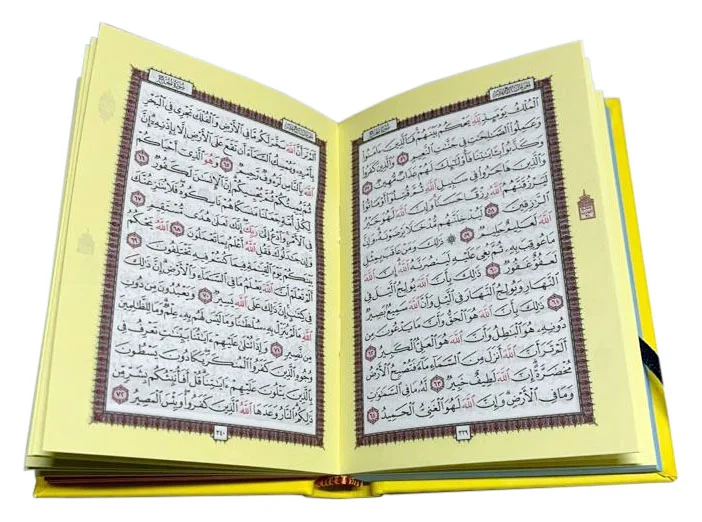 ٱلۡمُلۡكُ يَوۡمَئِذٖ لِّلَّهِ يَحۡكُمُ بَيۡنَهُمۡۚ فَٱلَّذِينَ ءَامَنُواْ
وَعَمِلُواْ ٱلصَّٰلِحَٰتِ فِي جَنَّٰتِ ٱلنَّعِيمِ ٥٦ وَٱلَّذِينَ كَفَرُواْ
وَكَذَّبُواْ بِـَٔايَٰتِنَا فَأُوْلَٰٓئِكَ لَهُمۡ عَذَابٞ مُّهِينٞ ٥٧
وَٱلَّذِينَ هَاجَرُواْ فِي سَبِيلِ ٱللَّهِ ثُمَّ قُتِلُوٓاْ أَوۡ مَاتُواْ
لَيَرۡزُقَنَّهُمُ ٱللَّهُ رِزۡقًا حَسَنٗاۚ وَإِنَّ ٱللَّهَ لَهُوَ خَيۡرُ
ٱلرَّٰزِقِينَ ٥٨ لَيُدۡخِلَنَّهُم مُّدۡخَلٗا يَرۡضَوۡنَهُۥۚ وَإِنَّ
ٱللَّهَ لَعَلِيمٌ حَلِيمٞ ٥٩ ۞ ذَٰلِكَۖ وَمَنۡ عَاقَبَ بِمِثۡلِ
مَا عُوقِبَ بِهِۦ ثُمَّ بُغِيَ عَلَيۡهِ لَيَنصُرَنَّهُ ٱللَّهُۚ إِنَّ ٱللَّهَ
لَعَفُوٌّ غَفُورٞ ٦٠ ذَٰلِكَ بِأَنَّ ٱللَّهَ يُولِجُ ٱلَّيۡلَ فِي
ٱلنَّهَارِ وَيُولِجُ ٱلنَّهَارَ فِي ٱلَّيۡلِ وَأَنَّ ٱللَّهَ سَمِيعُۢ بَصِيرٞ
٦١ ذَٰلِكَ بِأَنَّ ٱللَّهَ هُوَ ٱلۡحَقُّ وَأَنَّ مَا يَدۡعُونَ مِن
دُونِهِۦ هُوَ ٱلۡبَٰطِلُ وَأَنَّ ٱللَّهَ هُوَ ٱلۡعَلِيُّ ٱلۡكَبِيرُ ٦٢
أَلَمۡ تَرَ أَنَّ ٱللَّهَ أَنزَلَ مِنَ ٱلسَّمَآءِ مَآءٗ فَتُصۡبِحُ ٱلۡأَرۡضُ
مُخۡضَرَّةًۚ إِنَّ ٱللَّهَ لَطِيفٌ خَبِيرٞ ٦٣ لَّهُۥ مَا فِي ٱلسَّمَٰوَٰتِ
وَمَا فِي ٱلۡأَرۡضِۚ وَإِنَّ ٱللَّهَ لَهُوَ ٱلۡغَنِيُّ ٱلۡحَمِيدُ ٦٤
٣٣٩
أَلَمۡ تَرَ أَنَّ ٱللَّهَ سَخَّرَ لَكُم مَّا فِي ٱلۡأَرۡضِ وَٱلۡفُلۡكَ تَجۡرِي فِي ٱلۡبَحۡرِ
بِأَمۡرِهِۦ وَيُمۡسِكُ ٱلسَّمَآءَ أَن تَقَعَ عَلَى ٱلۡأَرۡضِ إِلَّا بِإِذۡنِهِۦٓۚ إِنَّ
ٱللَّهَ بِٱلنَّاسِ لَرَءُوفٞ رَّحِيمٞ ٦٥ وَهُوَ ٱلَّذِيٓ أَحۡيَاكُمۡ
ثُمَّ يُمِيتُكُمۡ ثُمَّ يُحۡيِيكُمۡۗ إِنَّ ٱلۡإِنسَٰنَ لَكَفُورٞ ٦٦
لِّكُلِّ أُمَّةٖ جَعَلۡنَا مَنسَكًا هُمۡ نَاسِكُوهُۖ فَلَا يُنَٰزِعُنَّكَ
فِي ٱلۡأَمۡرِۚ وَٱدۡعُ إِلَىٰ رَبِّكَۖ إِنَّكَ لَعَلَىٰ هُدٗى مُّسۡتَقِيمٖ ٦٧
وَإِن جَٰدَلُوكَ فَقُلِ ٱللَّهُ أَعۡلَمُ بِمَا تَعۡمَلُونَ ٦٨ ٱللَّهُ يَحۡكُمُ
بَيۡنَكُمۡ يَوۡمَ ٱلۡقِيَٰمَةِ فِيمَا كُنتُمۡ فِيهِ تَخۡتَلِفُونَ ٦٩
أَلَمۡ تَعۡلَمۡ أَنَّ ٱللَّهَ يَعۡلَمُ مَا فِي ٱلسَّمَآءِ وَٱلۡأَرۡضِۚ إِنَّ ذَٰلِكَ
فِي كِتَٰبٍۚ إِنَّ ذَٰلِكَ عَلَى ٱللَّهِ يَسِيرٞ ٧٠ وَيَعۡبُدُونَ مِن دُونِ
ٱللَّهِ مَا لَمۡ يُنَزِّلۡ بِهِۦ سُلۡطَٰنٗا وَمَا لَيۡسَ لَهُم بِهِۦ عِلۡمٞۗ وَمَا لِلظَّٰلِمِينَ
مِن نَّصِيرٖ ٧١ وَإِذَا تُتۡلَىٰ عَلَيۡهِمۡ ءَايَٰتُنَا بَيِّنَٰتٖ تَعۡرِفُ فِي
وُجُوهِ ٱلَّذِينَ كَفَرُواْ ٱلۡمُنكَرَۖ يَكَادُونَ يَسۡطُونَ
بِٱلَّذِينَ يَتۡلُونَ عَلَيۡهِمۡ ءَايَٰتِنَاۗ قُلۡ أَفَأُنَبِّئُكُم بِشَرّٖ مِّن
ذَٰلِكُمُۚ ٱلنَّارُ وَعَدَهَا ٱللَّهُ ٱلَّذِينَ كَفَرُواْۖ وَبِئۡسَ ٱلۡمَصِيرُ ٧٢
٣٤٠